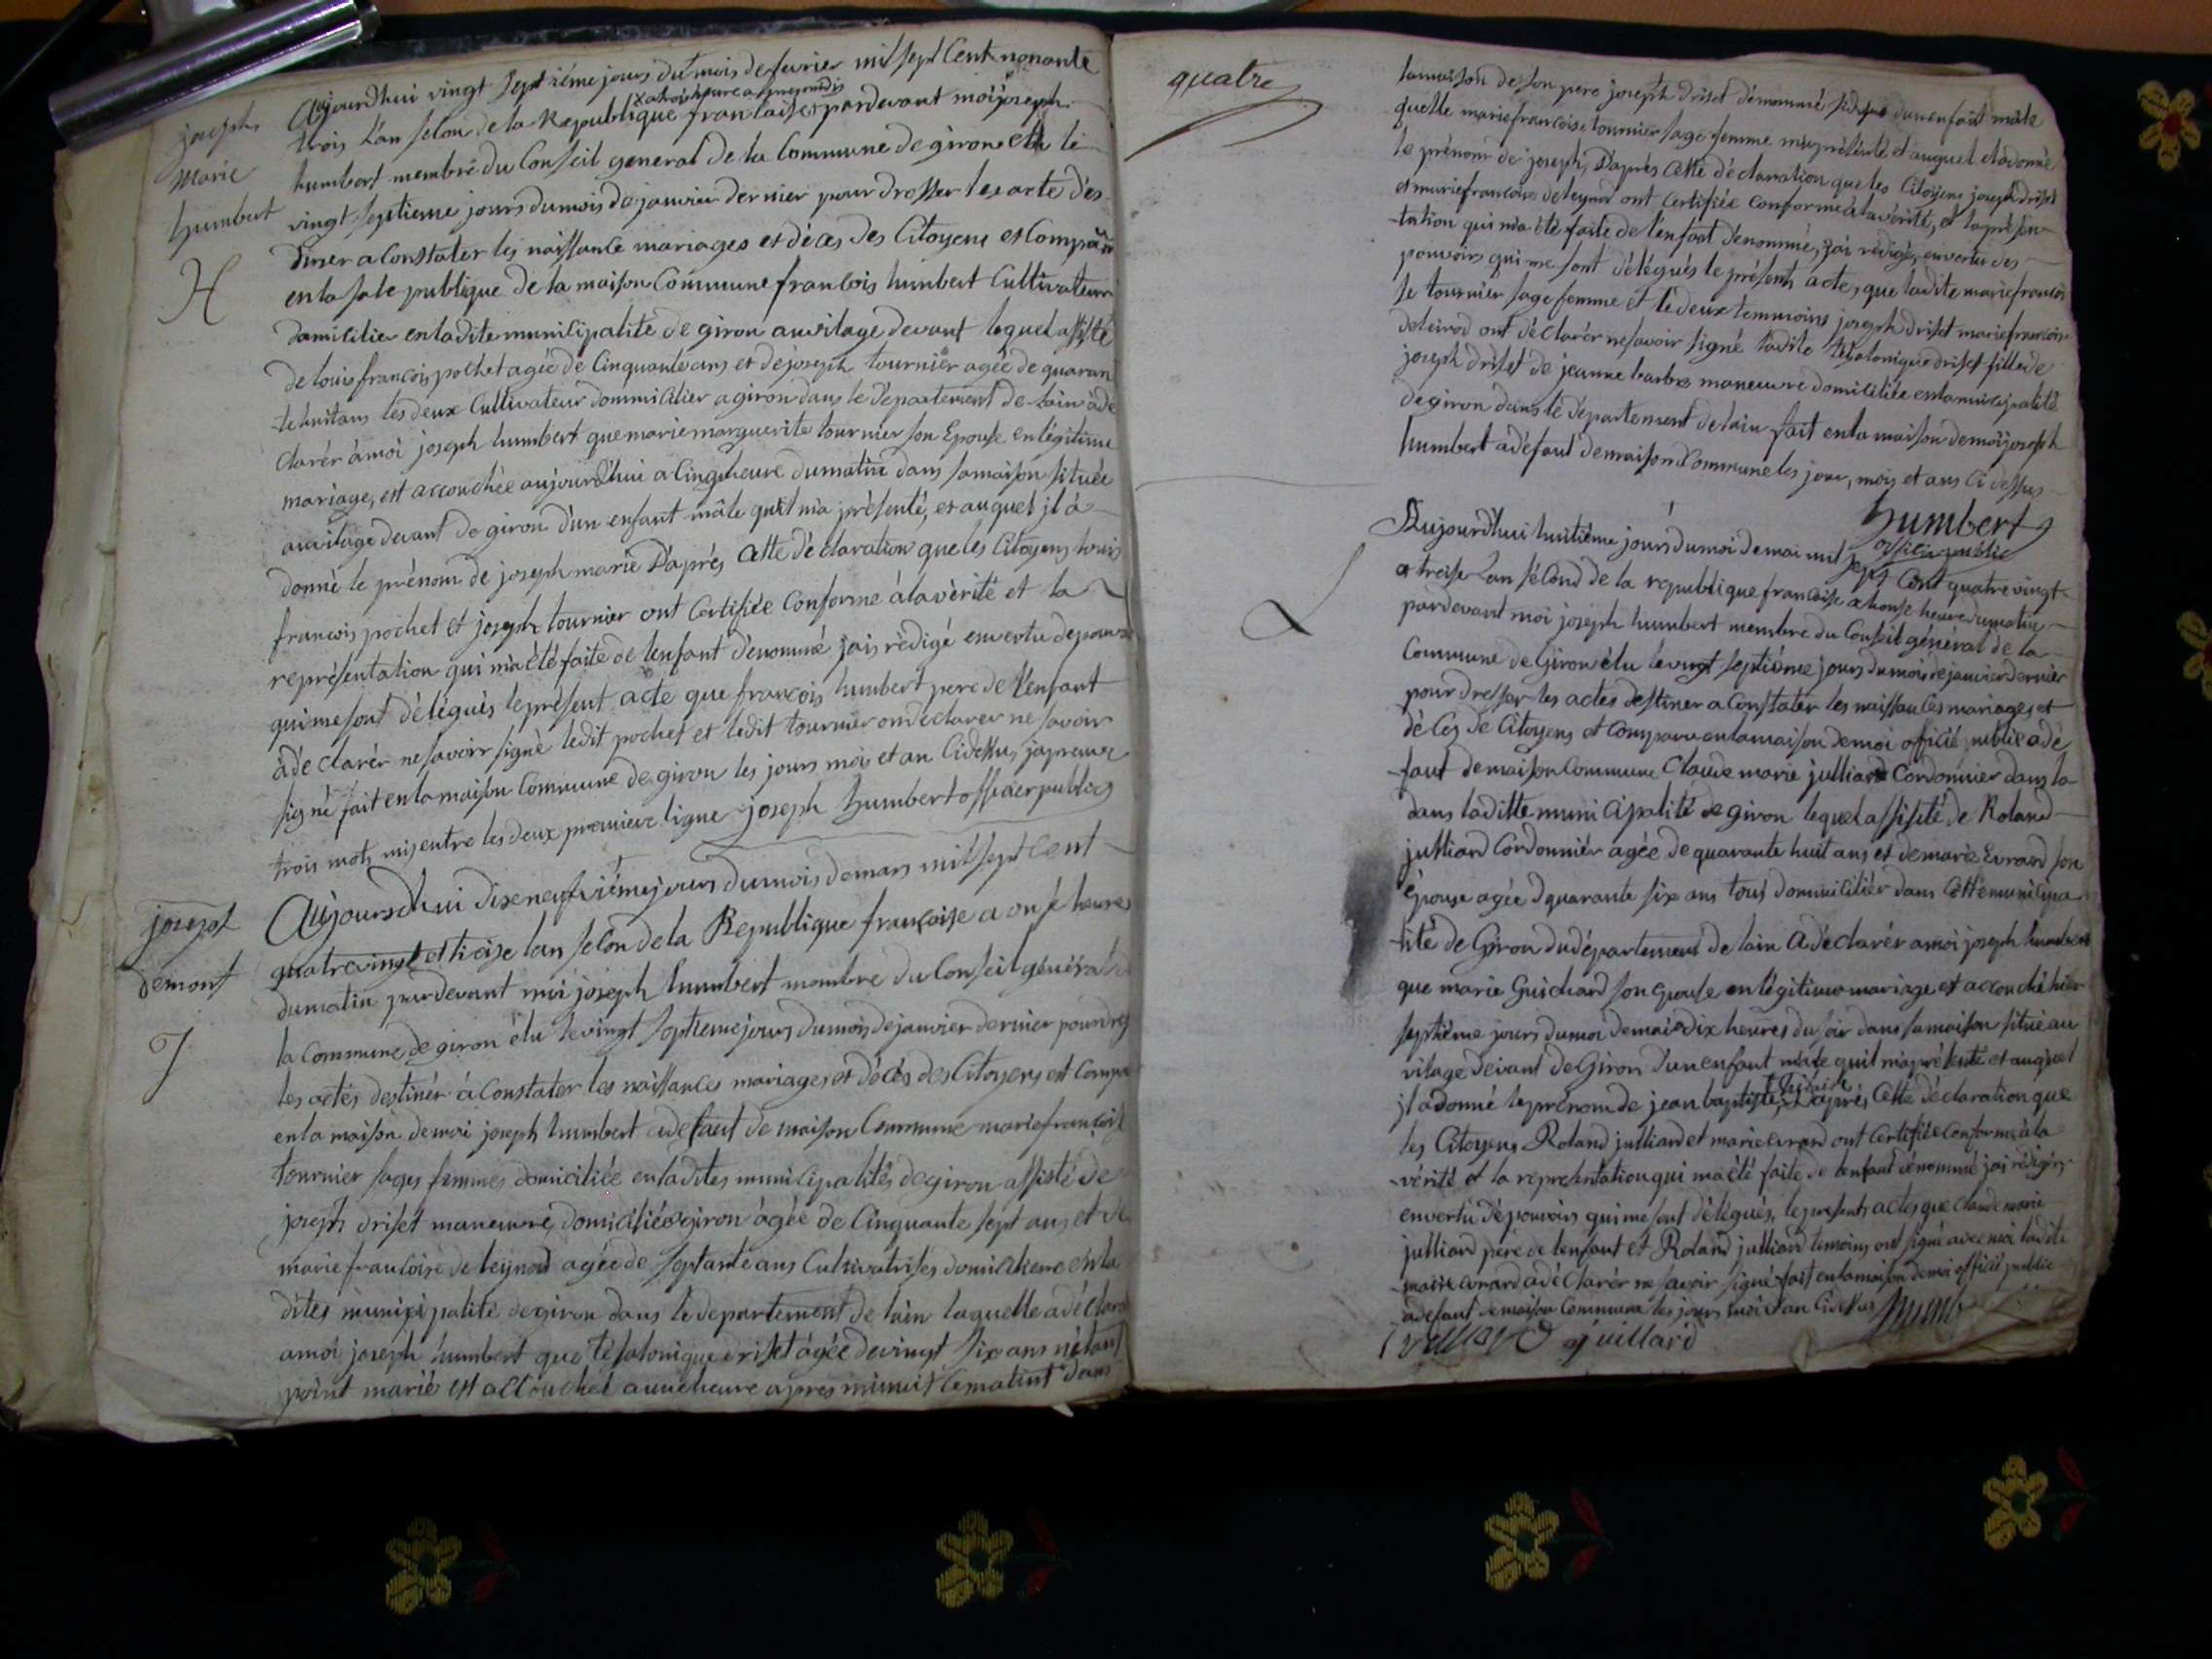 joseph
marie
humbert
H
Aujourdhui vingt septiéme jours du mois de fevrier mil sept Cent nonante
x a trois heure apres midis
trois L'an selon de la Republique francaise pardevant moi joseph
humbert membre du Conseil general de la Commune de giron elu le
vingt septieme jours du mois de janvier dernier pour drosser les acte des
tiner a Constater les naissance mariages et déces des Citoyens est Compar
en la sale publique de la maison Commune francois humbert Cultivateur
domicilier en ladite municipalite de giron au vilage devant lequel assisté
de louis francois pochet agée de Cinquante ans et de joseph tournier agée de quaran
te huit ans les deux Cultivateur dommicilier a giron dans le departement de lain àdé
clarér à moi joseph humbert que marie marguerite tournier son Epouse en légitime
mariage, est accouchée aujourdhui a Cinq heure du matin dans sa maison située
au vilage devant de giron d'un enfant mâle quil m'a présenté, et auquel jl à
donné le prénom de joseph marie D'aprés Cette déclaration que les Citoyens louis
francois pochet et joseph tournier ont Certifiée Conforme à la vérité et la
représentation qui m'a été faite de l'enfant dénommé jais rédigé en vertu de pouvoir
qui me sont délégués le présent acte que francois humbert pere de l'enfant
à déclarér ne savoir signé ledit pochet et ledit tournier on declarer ne savoir
signé fait en la maison Commune de giron les jours moi et an Cidessus japreuve
trois mots mis entre les deux premiere ligne joseph humbert officier public
joseph
demont
J
Aujourdhui dixneufviéme jours du mois de mars mil sept Cent
quatrevingt et treise lan selon de la Republique française a onse heures
du matin pardevant moi joseph humbert membre du Conseil général de
la Commune de giron élu le vingt septieme jours du mois de janvier dernier pour dres
les actes destinér à Constater les naissances mariages et décés des Citoyens est Compa
en la maison de moi joseph humbert a defaut de maison Commune marie francoise
tournier sages femmes domiciliée en ladites municipalités de giron assisté de
joseph driset maneuvre domiciliée a giron agée de Cinquante sept ans et de
marie francoise deleynod agée de septante ans Cultivatrises domiciliere en la
dites municipalité de giron dans le departement de lain laquelle a déclaré
a moi joseph humbert que tésalonique driset agée de vingt six ans nétant
point marié est accouchée a une heure apres minuit le matint dans
quatre
la maison de son pere joseph driset dénommé dun enfant mâle
quelle marie francoise tournier sage femme ma présenté et auquel el a donné
le prénom de joseph, D'aprés Cette déclaration que les Citoyens joseph driset
et marie francoise deleynod ont Certifiée Conforme à la vérité, et la présen
tation qui m'a été faite de l'enfant dénommé, jai rédigé, en vertu des
pouvoirs qui me sont délégués le présents acte, que ladite marie francoi
se tournier sage femme et le deux temmoins joseph driset marie francoise
deleinod ont déclarér ne savoir signé ladite tésalonique driset fille de
joseph driset de jeanne barbe maneuvre domiciliée en la municipalité
de giron dans le département de lain fait en la maison de moi joseph
humbert à défaut de maison Commune les jour, mois et ans Ci dessus
humbert
officie public
L
Aujourdhui huitiéme jours du moi de mai mil sept Cent quatre vingt
et treise Lan sécond de la republique francoise a honse heure du matin
pardevant moi joseph humbert membre du Conseil général de la
Commune de Giron élu le vingt septiéme jours du mois de janvier dernier
pour dresser les actes destiner a Constater les naissances mariages et
décés de Citoyens et Comparu en la maison de moi officié public a dé
faut de maison Commune Claude marie julliard Cordonnier dans la
dans laditte municipalité de giron lequel assisité de Roland
julliard Cordonnier agée de quarante huit ans et de marie Evrard son
épouse agée d quarante six ans tous dommicilier dans Cette municipa
lité de Giron du département de lain A déclarér a moi joseph humbert
que marie Guichard son épouse en légitime mariage et accouché hier
septième jours du moi de mai a dix heures du soir dans sa maison situé au
vilage devant de Giron d'un enfant mâle quil ma présenté et auquel
jl a donné le prénom de jean baptiste, D'aprés Cette déclaration que
les Citoyens Roland julliard et marie evrard ont Certifiée Conforme à la
vérité et la representation qui ma été faite de l'enfant dénommé jai rédigér
en vertu dé pouvoirs qui me sont délégués, le présents actes que Claude marie
julliard pére de lenfant et Roland julliard temoins ont signé avec moi ladite
marie evrard a dé Clarér ne savoir signé fait en la maison de moi officié public
a defaut de maison Commune les jours moi et an Cidessus humb
juillard